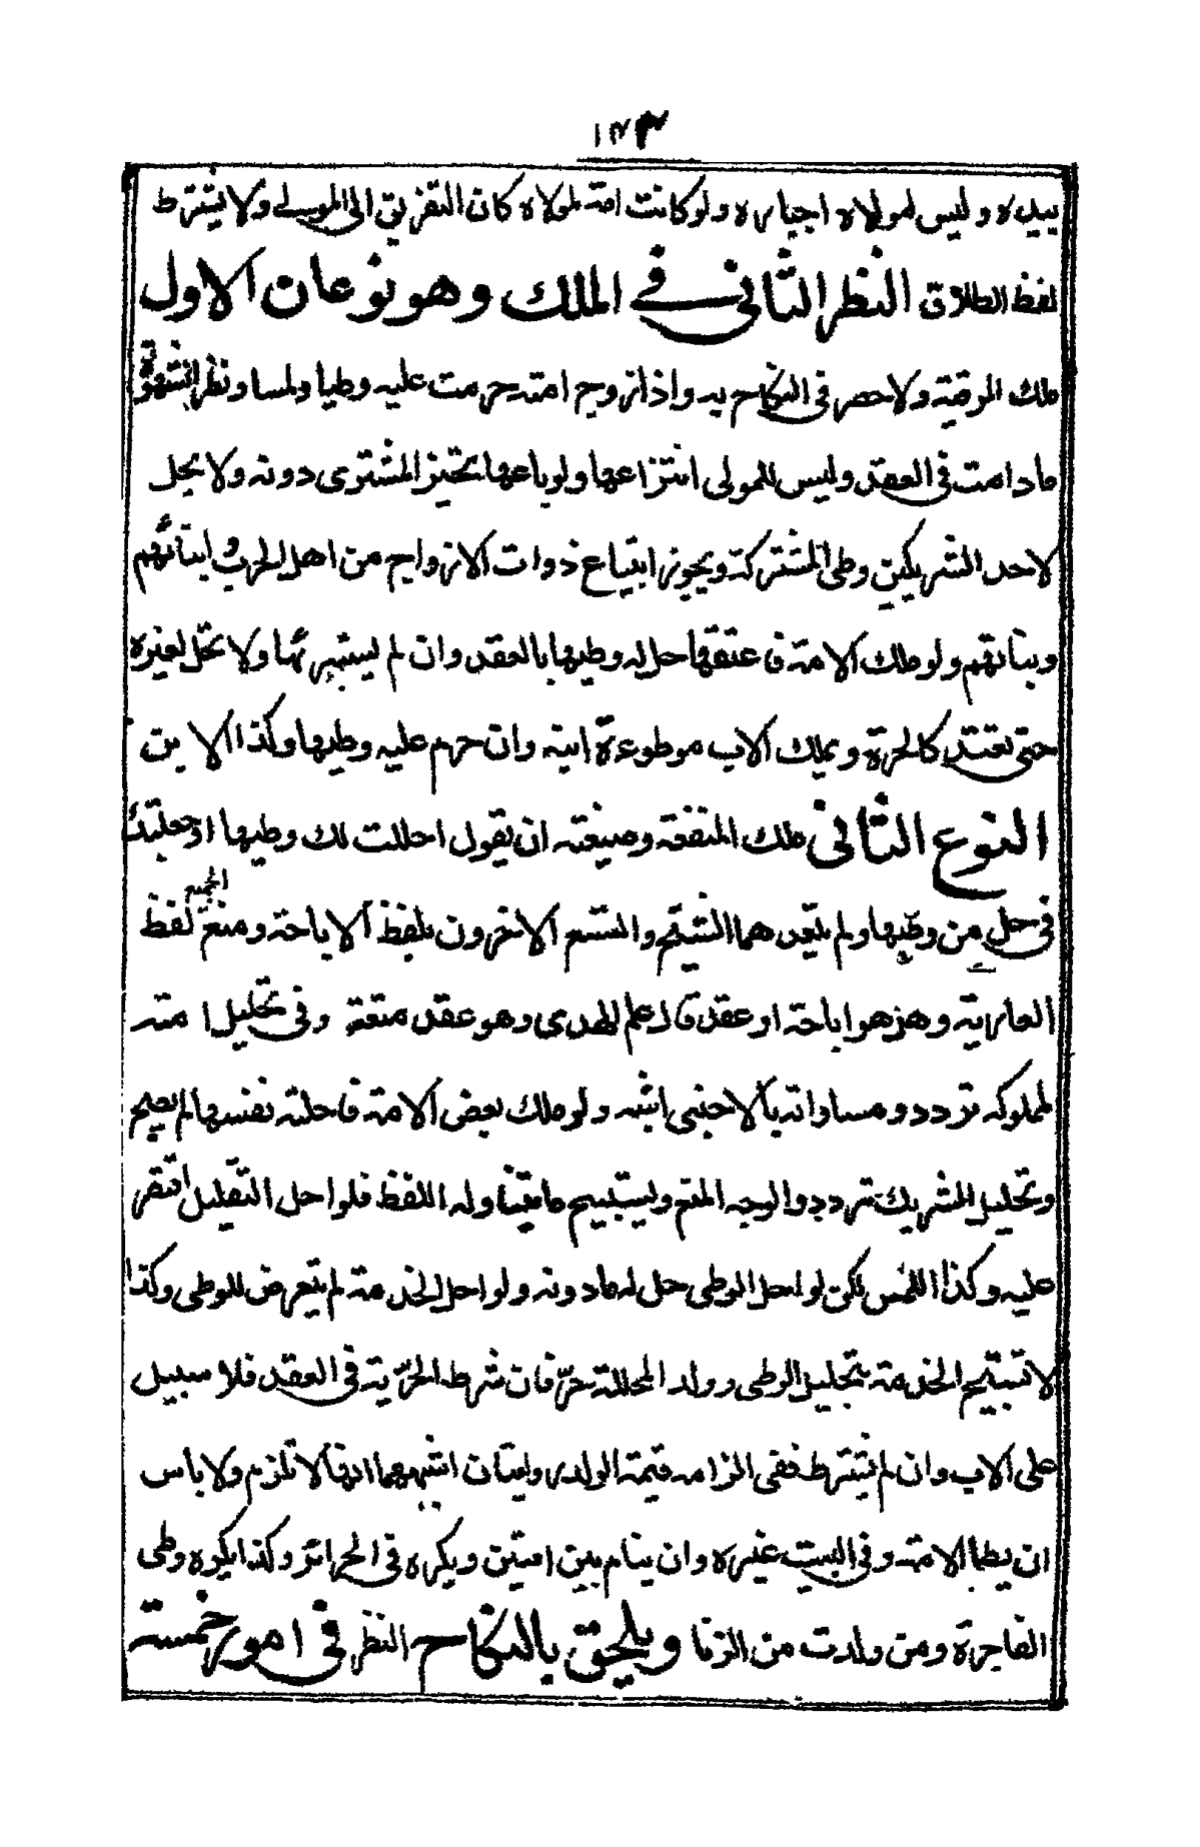 ١٢٣
بيده وليس لمولاه اجباره ولو كانت امة لمولاه كان التفريق الى المولى ولا يشترط
لفظ الطلاق النظر الثاني في الملك وهو نوعان الاول
ملك الرقبة ولا حصر في النكاح به واذا زوج امته حرمت عليه وطيا ولمسا ونظرا بشهوة
مادامت في العقد وليس للمولى انتزاعها ولو باعها تخير المشترى دونه ولا يحل
لاحد الشريكين وطى المشتركة ويجوز ابتياع ذوات الازواج من اهل الحرب وابنائهم
وبناتهم ولو ملك الامة فاعتقها حل له وطيها بالعقد وان لم يستبرئها ولا تحل لغيره
حتى تعتد كالحرة ويملك الاب موطوءة ابنه وان حرم عليه وطيها وكذا الابن
النوع الثاني ملك المنفعة وصيغته ان يقول احللت لك وطيها او جعلتك
في حل من وطيها ولم يتعدهما الشيخ واتسع الاخرون بلفظ الاباحة ومنع الجميع لفظ
العارية وهل هو اباحة او عقد قال علم الهدى وهو عقد متعة وفي تحليل امته
لمملوكه تردد ومساواته بالاجنبى اشبه ولو ملك بعض الامة فاحلته نفسها لم يصح
وتحليل الشريك تردد والوجه المنع ويستبيح ما يتناوله اللفظ فلو احل التقبيل اقتصر
عليه وكذا اللمس لكن لو احل الوطى حل له مادونه ولو احل الخدمة لم يتعرض للوطى وكذا
لا تستبيح الخدمة بتحليل الوطى وولد المحللة حر فان شرط الحرية في العقد فلا سبيل
على الاب وان لم يشترط ففى الزامه قيمة الولد روايتان اشبههما انها لا تلزم ولا باس
ان يطا الامة وفي البيت غيره وان ينام بين امتين ويكره في الحرائر وكذا يكره وطى
الفاجرة ومن ولدت من الزنا ويلحق بالنكاح النظر في امور خمسة